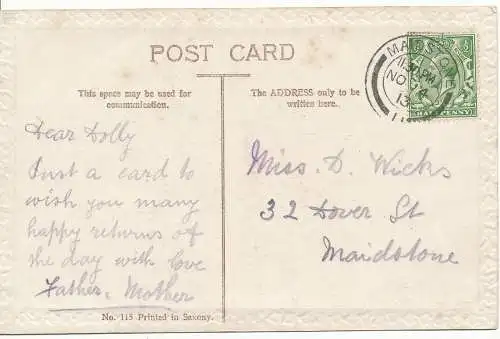 POST CARD
This space may be used for
communication.
The ADDRESS only to be
written here.
MAIDSTONE
11.30 PM
NO 14
13
HALFPENNY
Dear Dolly
Just a card to
wish you many
happy returns of
the day with love
Father, Mother
Miss. D. Wicks
32 Dover St
Maidstone
No. 115 Printed in Saxony.